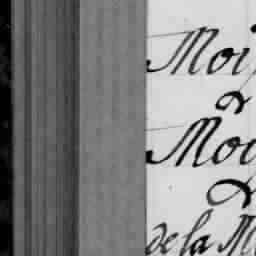 Moi
&
Moi
&
de la M